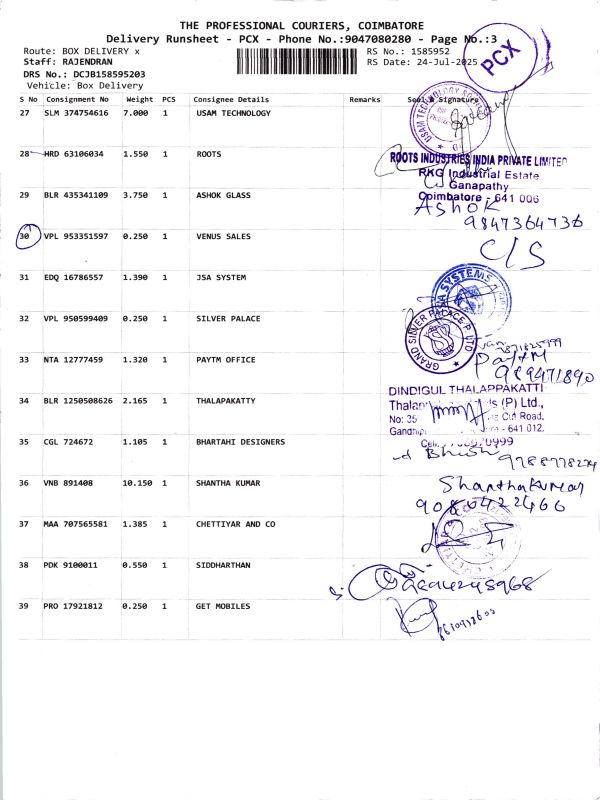 THE PROFESSIONAL COURIERS, COIMBATORE
Delivery Runsheet - PCX - Phone No.:9047080280 - Page No.:3
Route: BOX DELIVERY x RS No.: 1585952
Staff: RAJENDRAN RS Date: 24-Jul-2025
DRS No.: DCJB158595203
Vehicle: Box Delivery
PCX
S No Consignment No Weight PCS Consignee Details Remarks Seal & Signature
27 SLM 374754616 7.000 1 USAM TECHNOLOGY
28 HRD 63106034 1.550 1 ROOTS
ROOTS INDUSTRIES INDIA PRIVATE LIMITED
RKG Industrial Estate
Ganapathy
Coimbatore - 641 006
29 BLR 435341109 3.750 1 ASHOK GLASS
AShOK
9847364736
30 VPL 953351597 0.250 1 VENUS SALES
C/S
31 EDQ 16786557 1.390 1 JSA SYSTEM
SYSTEMS
32 VPL 950599409 0.250 1 SILVER PALACE
GRAND SILVER PALACE P. LTD
33 NTA 12777459 1.320 1 PAYTM OFFICE
Paytm
989471890
34 BLR 1250508626 2.165 1 THALAPAKATTY
DINDIGUL THALAPPAKATTI
(P) Ltd.,
No: 35 Road.
641 012.
35 CGL 724672 1.105 1 BHARTAHI DESIGNERS
9788778274
36 VNB 891408 10.150 1 SHANTHA KUMAR
Shantha Kumar
9080422466
37 MAA 707565581 1.385 1 CHETTIYAR AND CO
38 PDK 9100011 0.550 1 SIDDHARTHAN
39 PRO 17921812 0.250 1 GET MOBILES